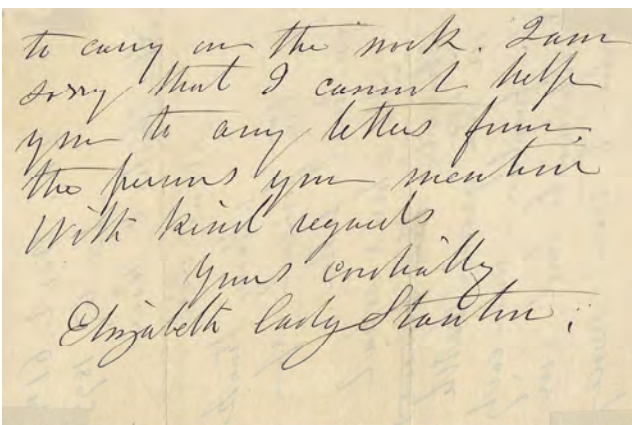 to carry on the work. I am
sorry that I cannot help
you to any letters from
the persons you mention
With kind regards
Yours cordially
Elizabeth Cady Stanton.